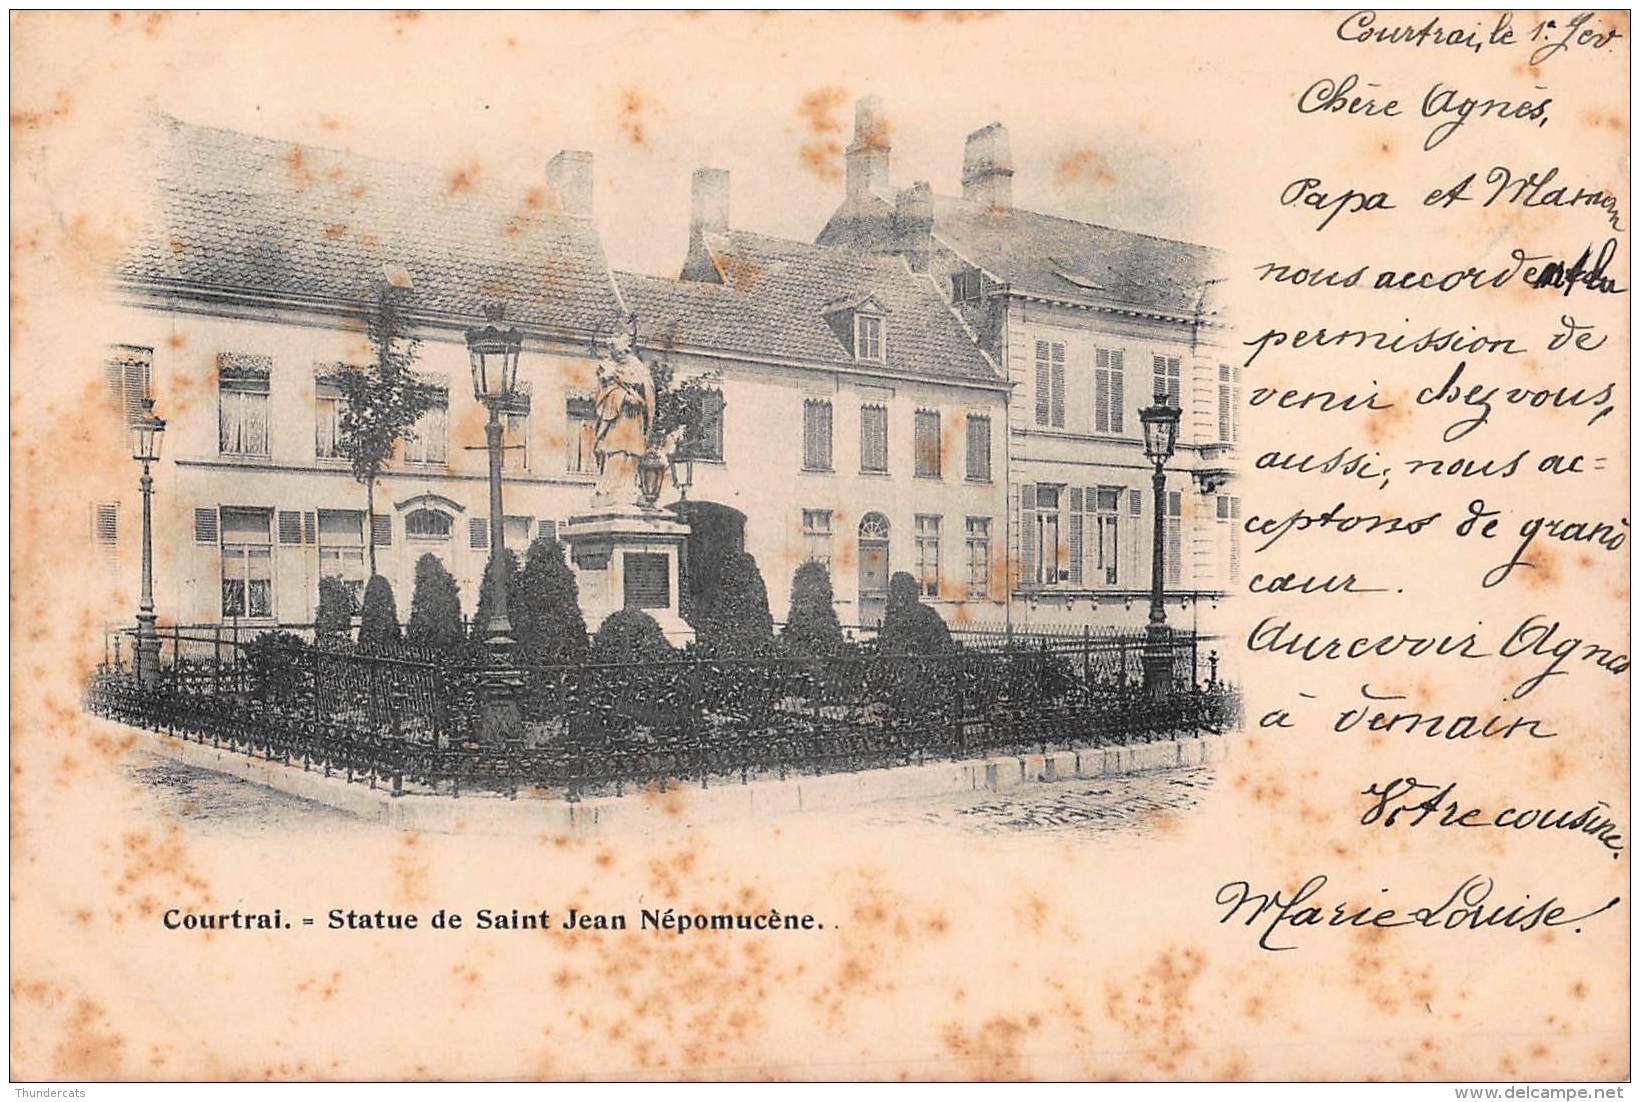 Courtrai, le 1.ª Fév
Chère Agnès,
Papa et Maman
nous accordent la
permission de
venir chez vous,
aussi, nous ac=
ceptons de grand
cœur.
Aurevoir Agnès
à demain
Votre cousine.
Marie Louise.
Courtrai. = Statue de Saint Jean Népomucène. .
Thundercats
www.delcampe.net